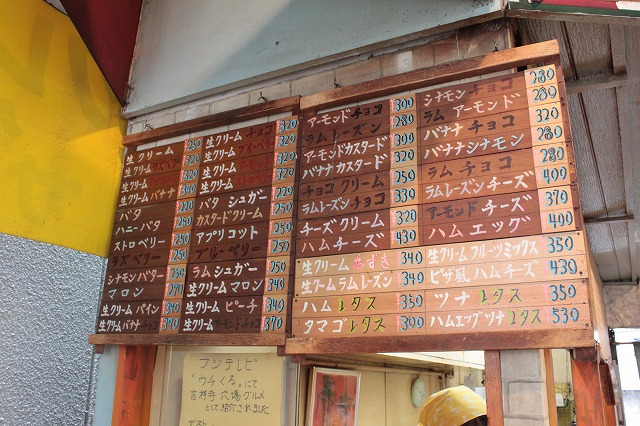 生クリーム 250
生クリーム ラズベリー 320
生クリーム
生クリーム バナナ 340
バタ 220
ハニーバタ 250
ストロベリー 250
ラズベリー
シナモンバター 250
マロン 270
生クリーム パイン 340
生クリーム バナナチョコ 370
生クリーム チョコ 320
生クリーム ブルーベリー 320
生クリーム
生クリーム ラム
バタ シュガー
カスタードクリーム
アプリコット 250
ブルーベリー
ラム シュガー
ハムマヨネーズ 340
生クリーム ピーチ 340
生クリーム アーモンドチョコ 370
アーモンド チョコ 300
ラム レーズン
アーモンドカスタード
バナナ カスタード 320
チョコ クリーム
ラムレーズン チョコ 330
チーズ クリーム 320
ハム チーズ 430
生クリーム あずき 340
生クリーム ラム レーズン 340
ハム レタス 350
タマゴ レタス 300
シナモン チョコ 280
ラム アーモンド 280
バナナ チョコ 320
バナナシナモン 280
ラム チョコ 280
ラムレーズン チーズ 400
アーモンド チーズ 370
ハム エッグ 400
生クリーム フルーツミックス 350
ピザ風 ハムチーズ 430
ツナ レタス 350
ハムエッグツナレタス 530
フジテレビ
"ウチくる"にて
吉祥寺 穴場グルメ
として紹介されました
ゲスト